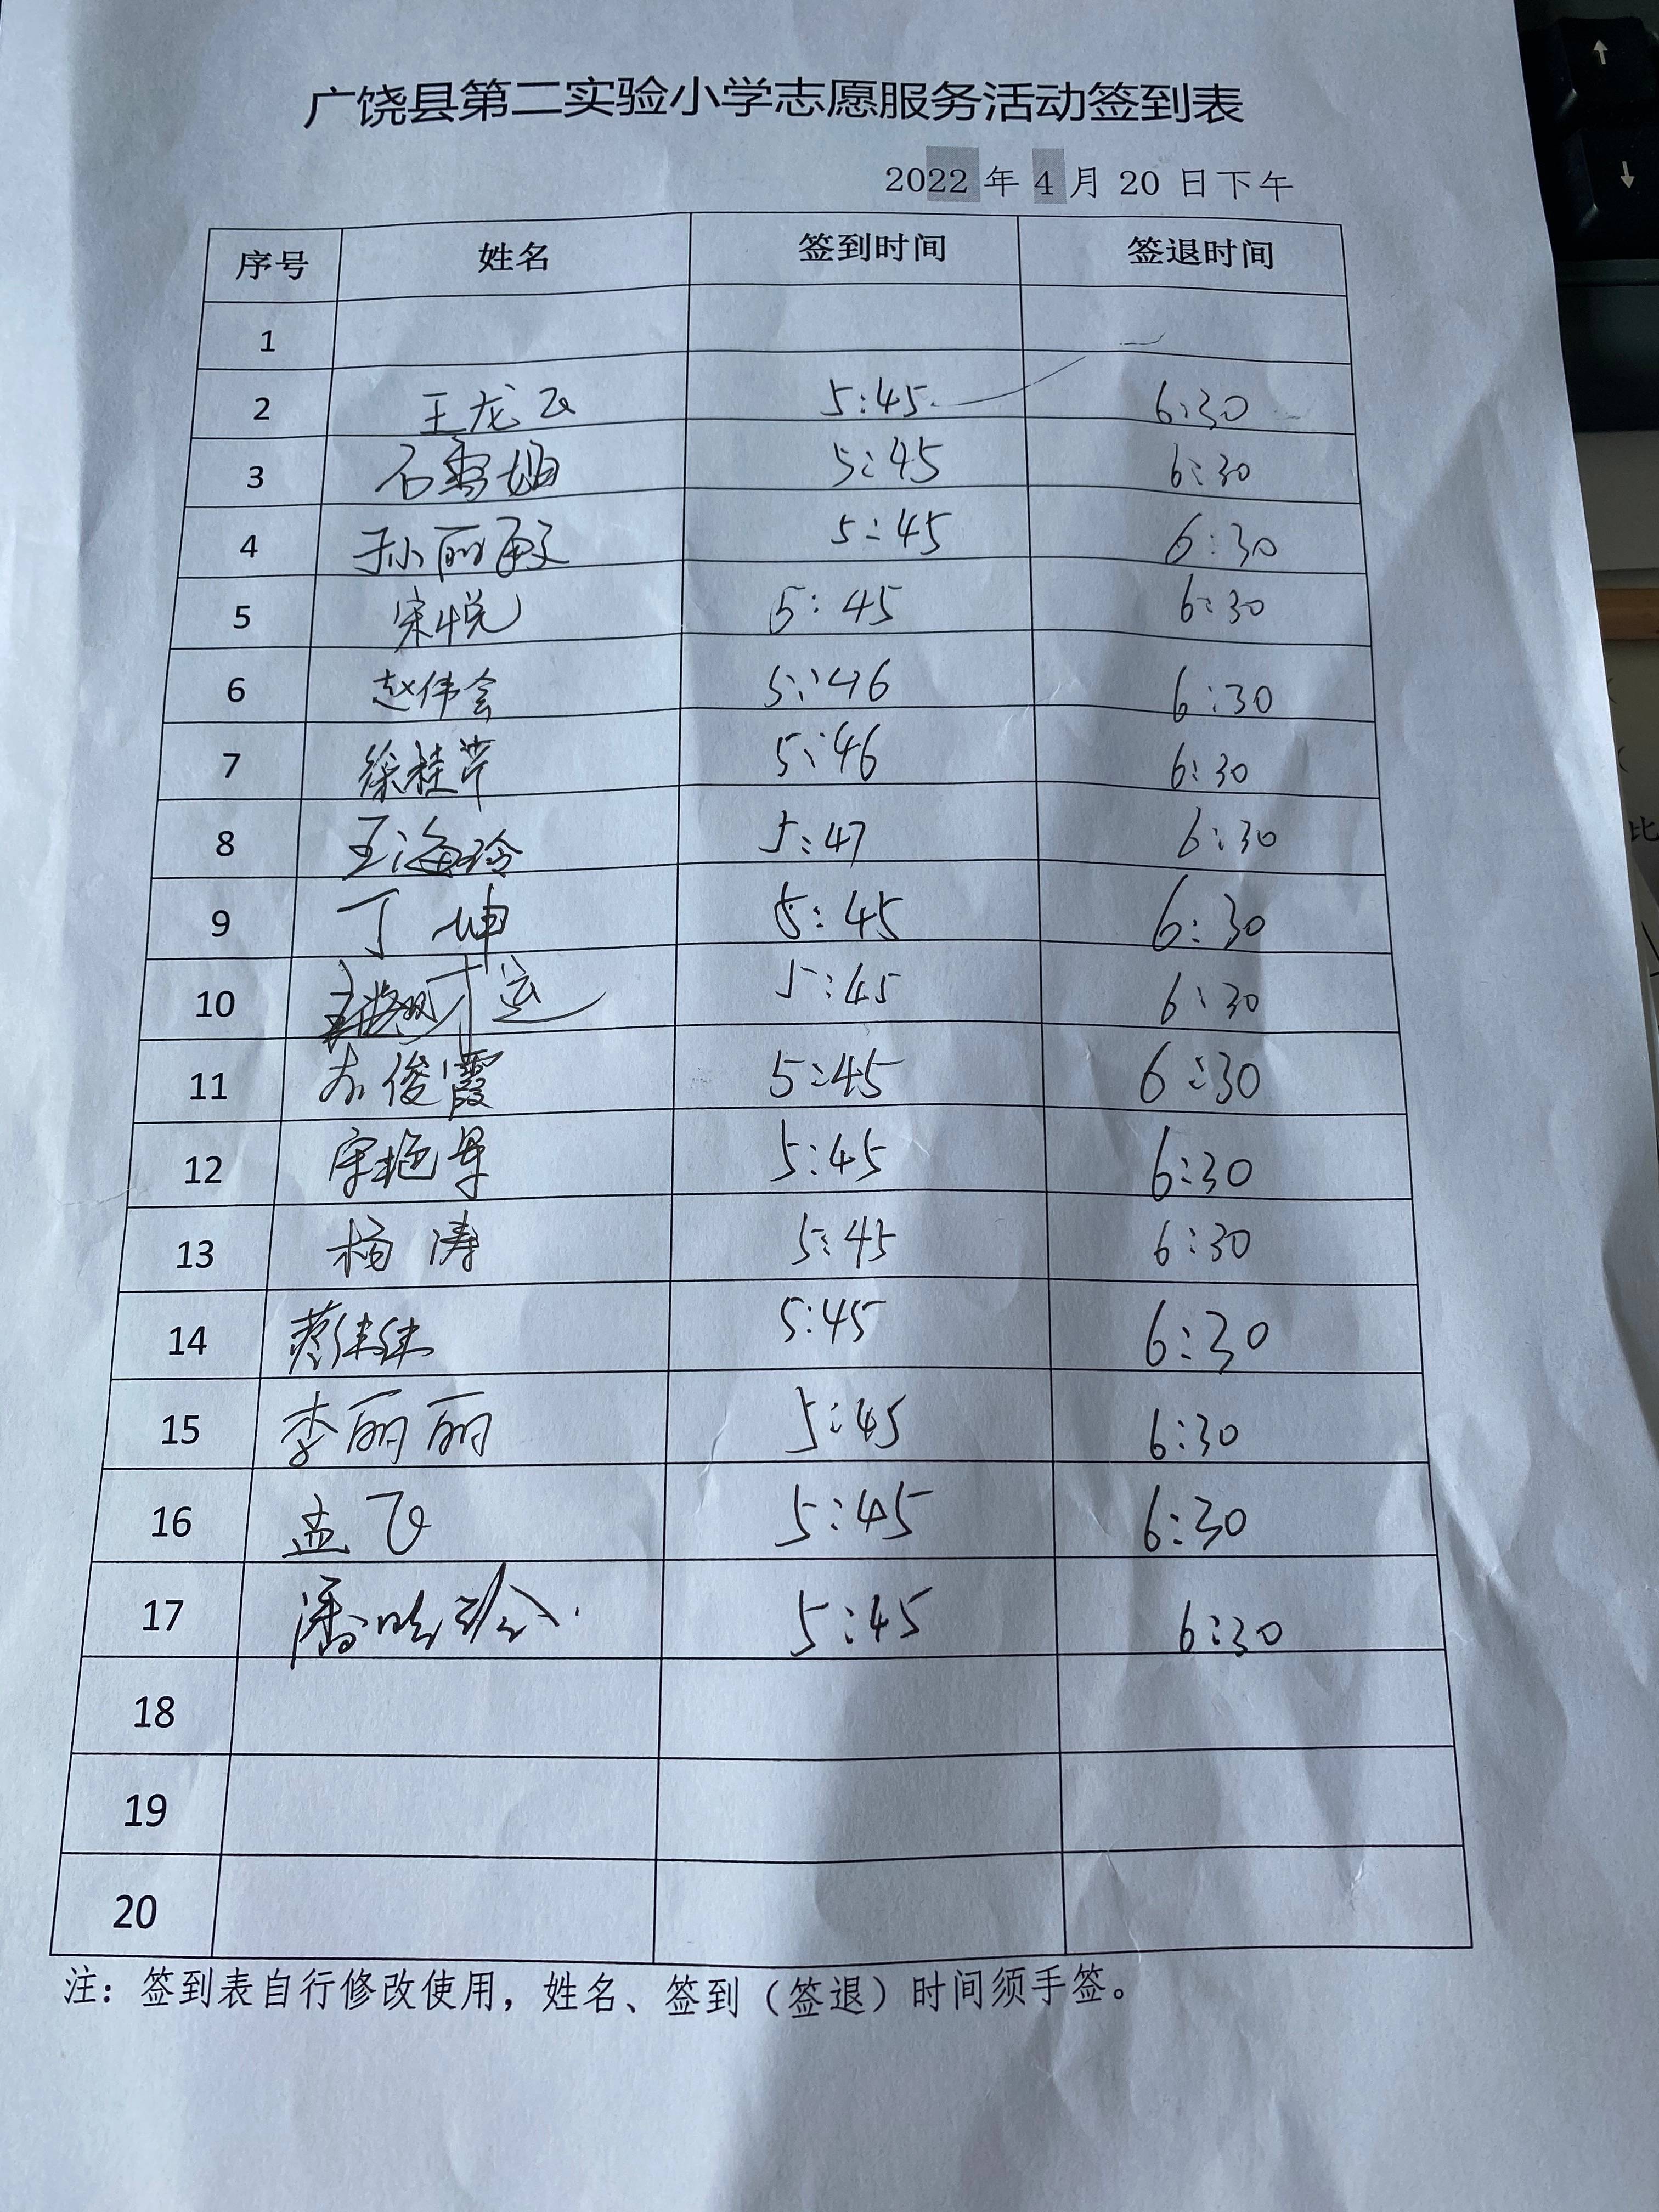 广饶县第二实验小学志愿服务活动签到表
2022 年 4 月 20 日下午
序号 姓名 签到时间 签退时间
1
2 王龙飞 5:45 6:30
3 石雪 5:45 6:30
4 孙丽 5:45 6:30
5 宋悦 5:45 6:30
6 赵伟会 5:46 6:30
7 徐桂芹 5:46 6:30
8 王海玲 5:47 6:30
9 丁坤 5:45 6:30
10 5:45 6:30
11 俊霞 5:45 6:30
12 宋艳 5:45 6:30
13 杨涛 5:45 6:30
14 5:45 6:30
15 李丽丽 5:45 6:30
16 孟飞 5:45 6:30
17 潘 5:45 6:30
18
19
20
注：签到表自行修改使用，姓名、签到（签退）时间须手签。